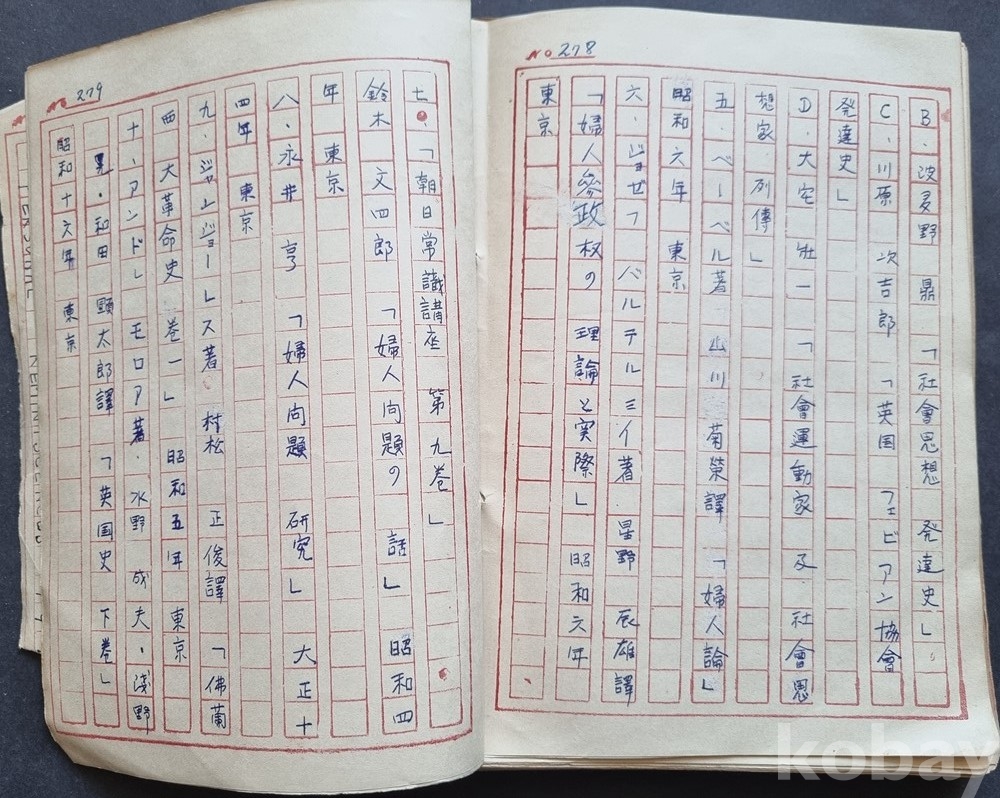 No 278
B.波多野 鼎 「社會思想 発達史」
C.川原 次吉郎 「英国 フェビアン協會
発達史」
D.大宅 壮一 「社會運動家 及 社會思
想家 列傳」
五.ベーベル著 山川 菊榮譯 「婦人論」
昭和 六年 東京
六.ジョゼフ バルテルミイ著 星野 辰雄譯
「婦人參政权の 理論と実際」 昭和六年
東京
No 279
七.「朝日常識講座 第九巻」
鈴木 文四郎 「婦人问題の 話」 昭和四
年 東京
八.永井 亨 「婦人问題 研究」 大正十
四年 東京
九.ジャンジョーレス著 村松 正俊譯 「佛蘭
西 大革命史 巻一」 昭和五年 東京
十.アンドレ モロア著.水野 成夫.浅野
晃.和田 顕太郎譯 「英国史 下巻」
昭和十六年 東京
kobay